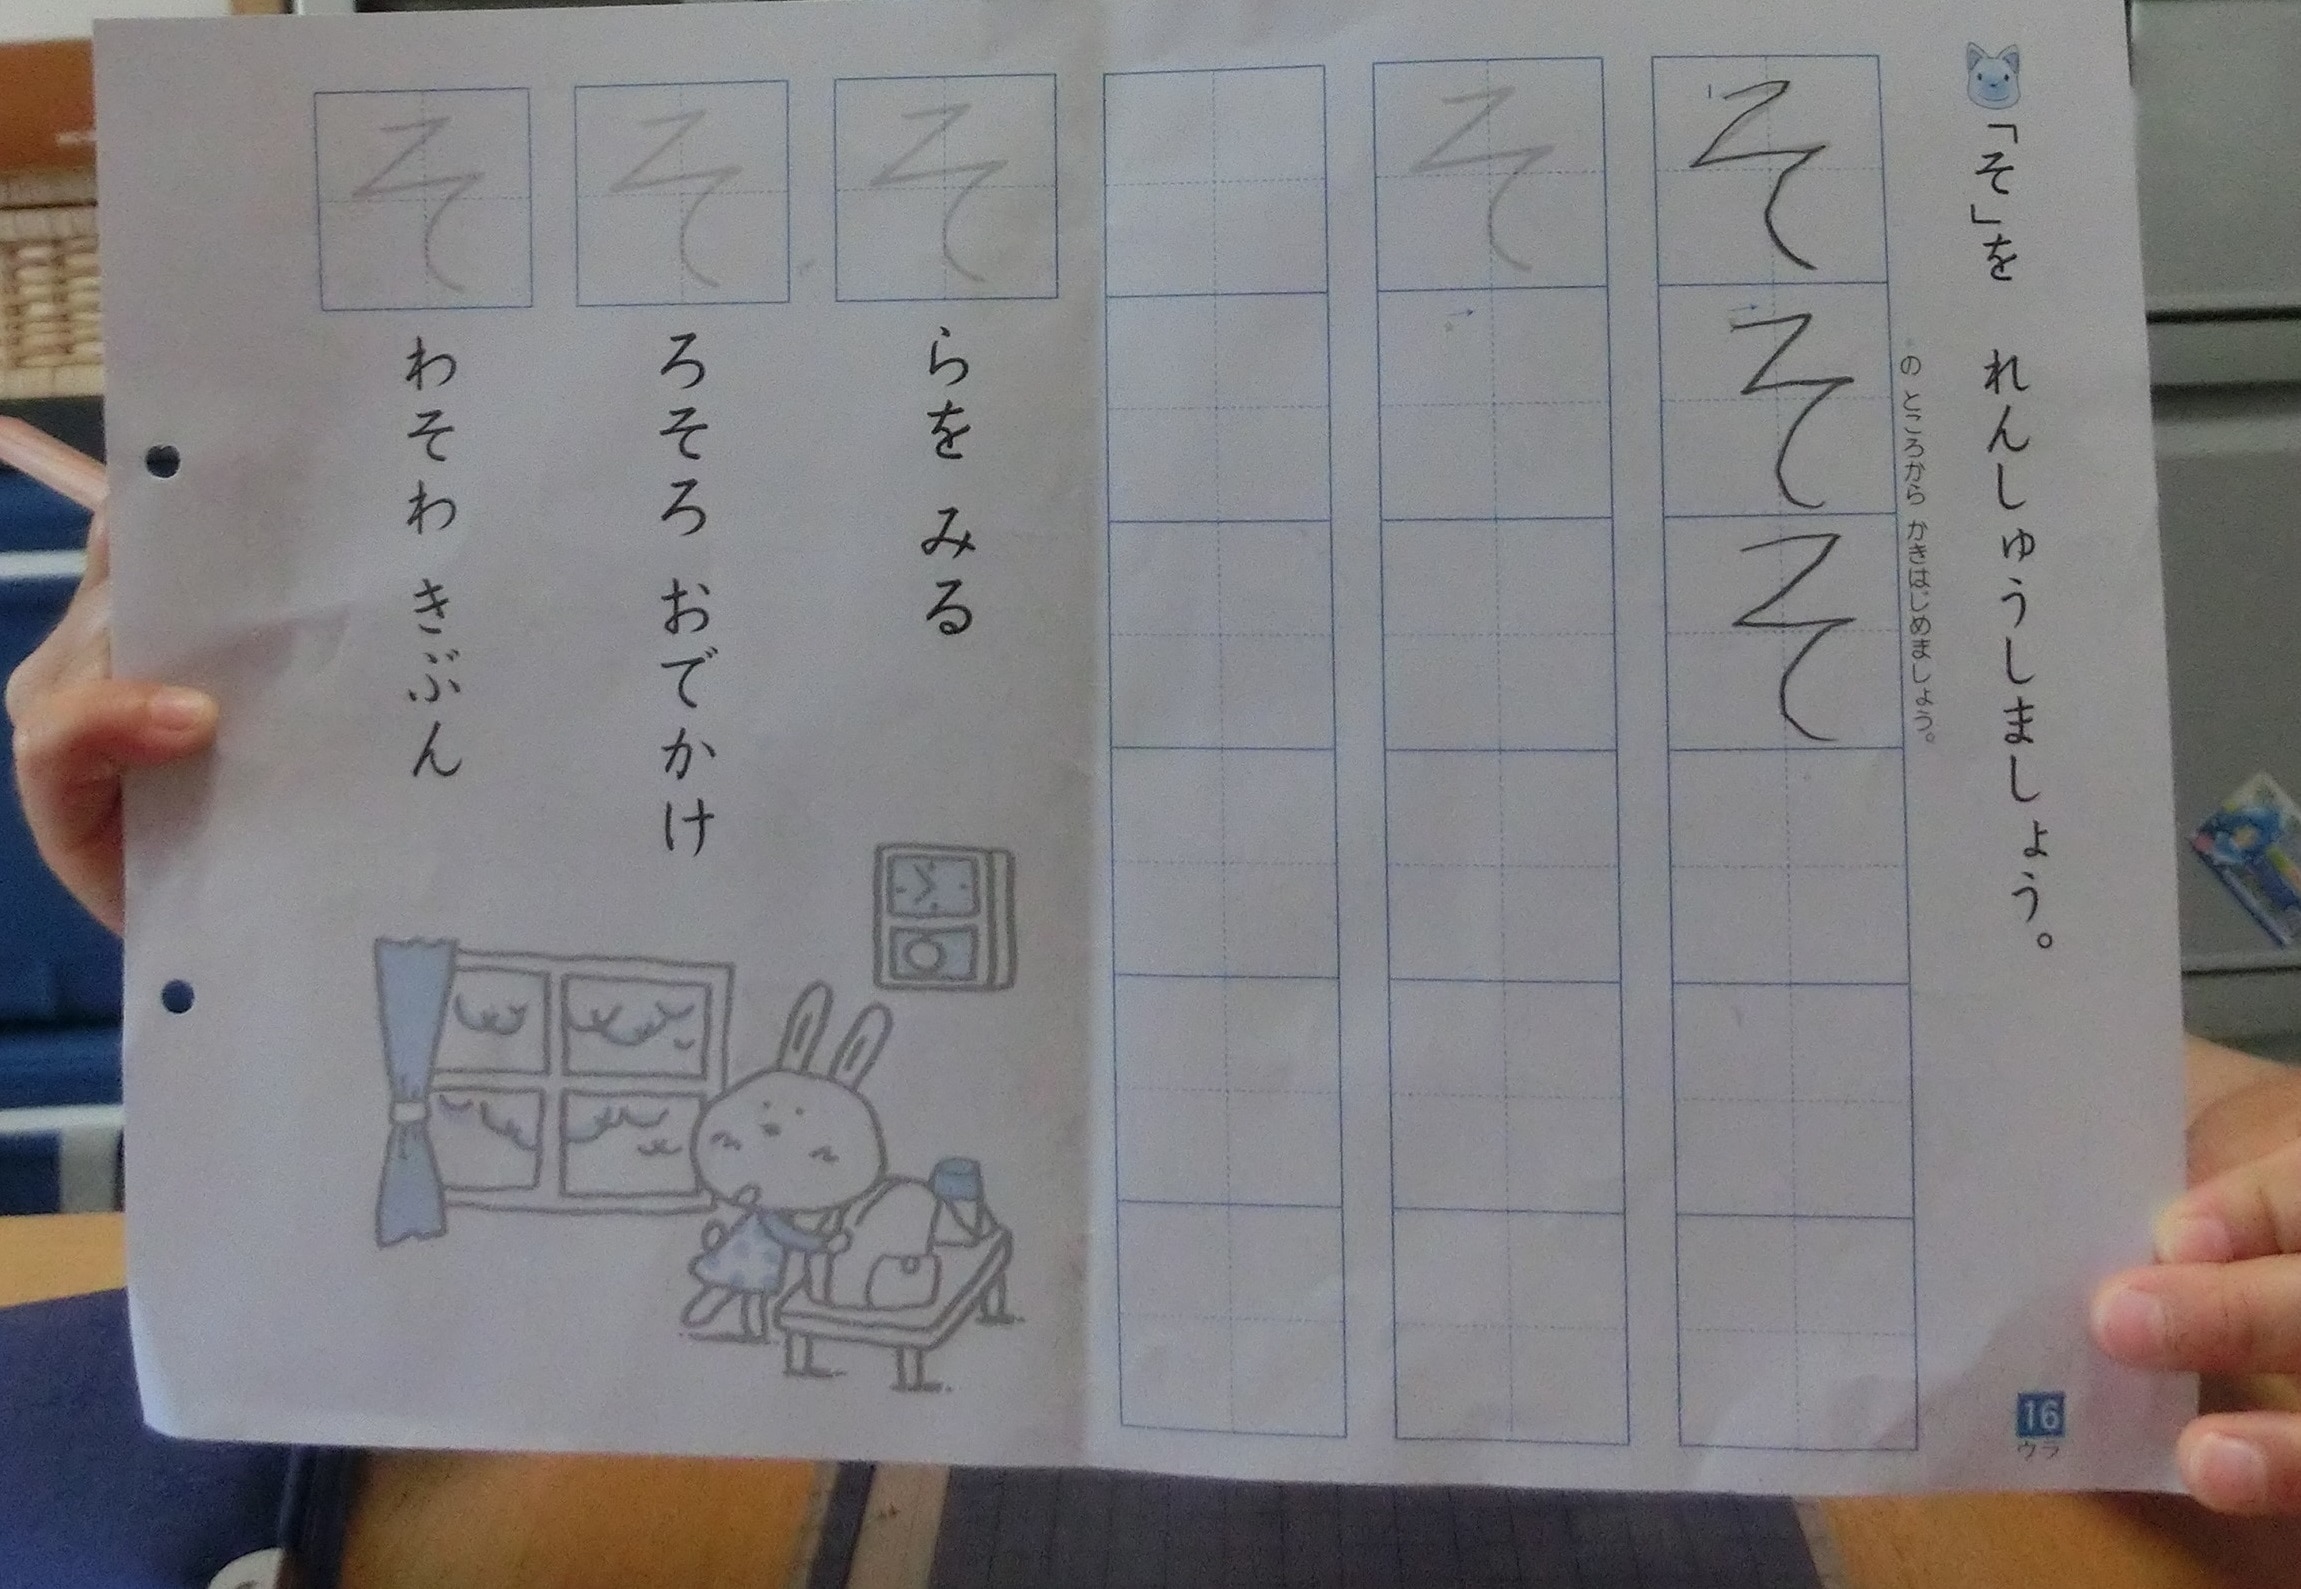 「そ」を れんしゅうしましょう。
の ところから かきはじめましょう。
1そ
そ
そ
そ
そらを みる
そろそろ おでかけ
そわそわ きぶん
16
ウラ